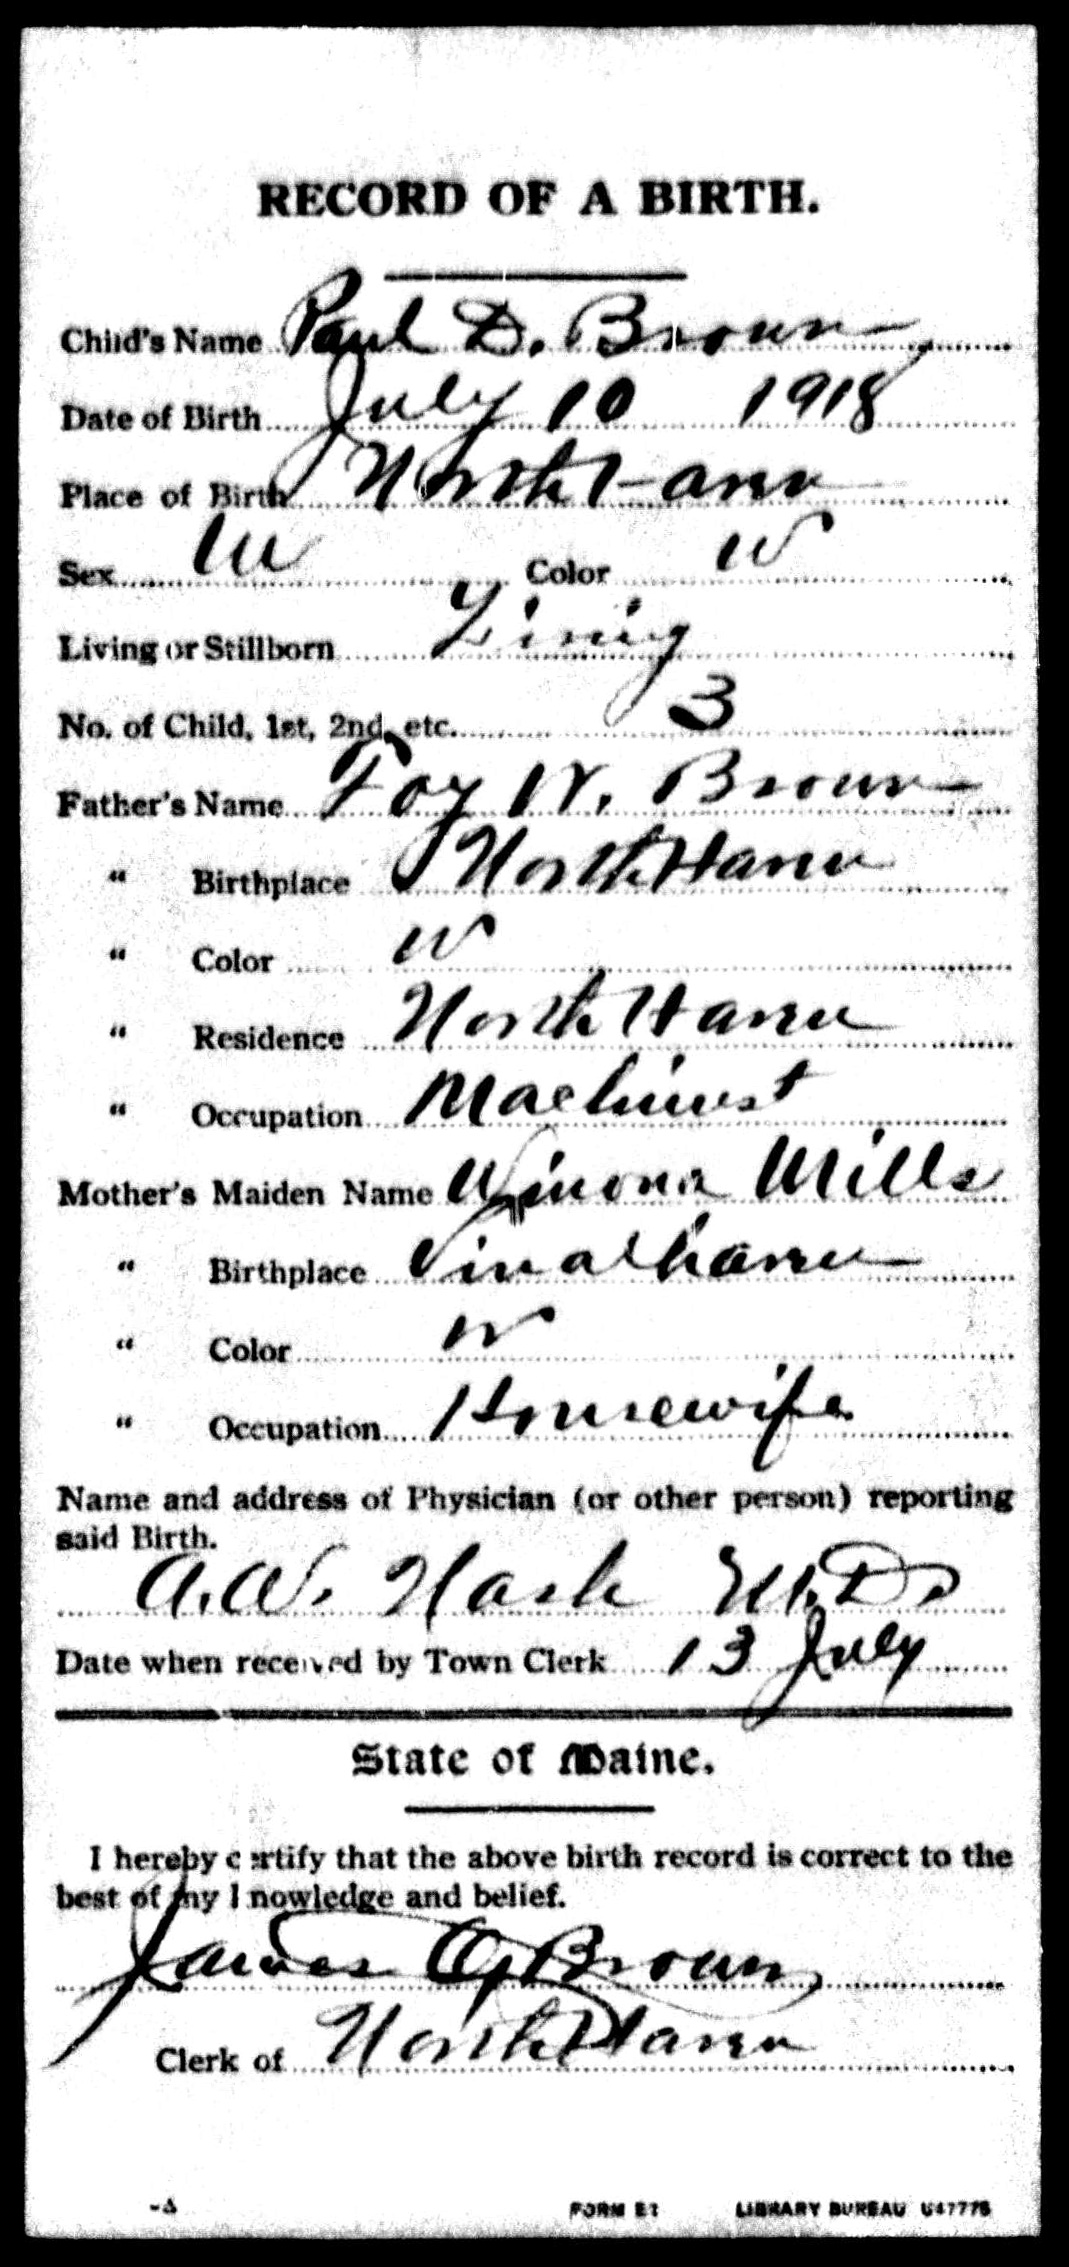 RECORD OF A BIRTH.
Child's Name Paul D. Brown
Date of Birth July 10 1918
Place of Birth North Haven
Sex M Color W
Living or Stillborn Living
No. of Child, 1st, 2nd, etc. 3
Father's Name Foy W. Brown
" Birthplace North Haven
" Color W
" Residence North Haven
" Occupation Machinist
Mother's Maiden Name Winona Mills
" Birthplace Vinalhaven
" Color W
" Occupation Housewife
Name and address of Physician (or other person) reporting
said Birth.
A.W. Nash M.D.
Date when received by Town Clerk 13 July
State of Maine.
I hereby certify that the above birth record is correct to the
best of my knowledge and belief.
James O. Brown
Clerk of North Haven
FORM LIBRARY BUREAU